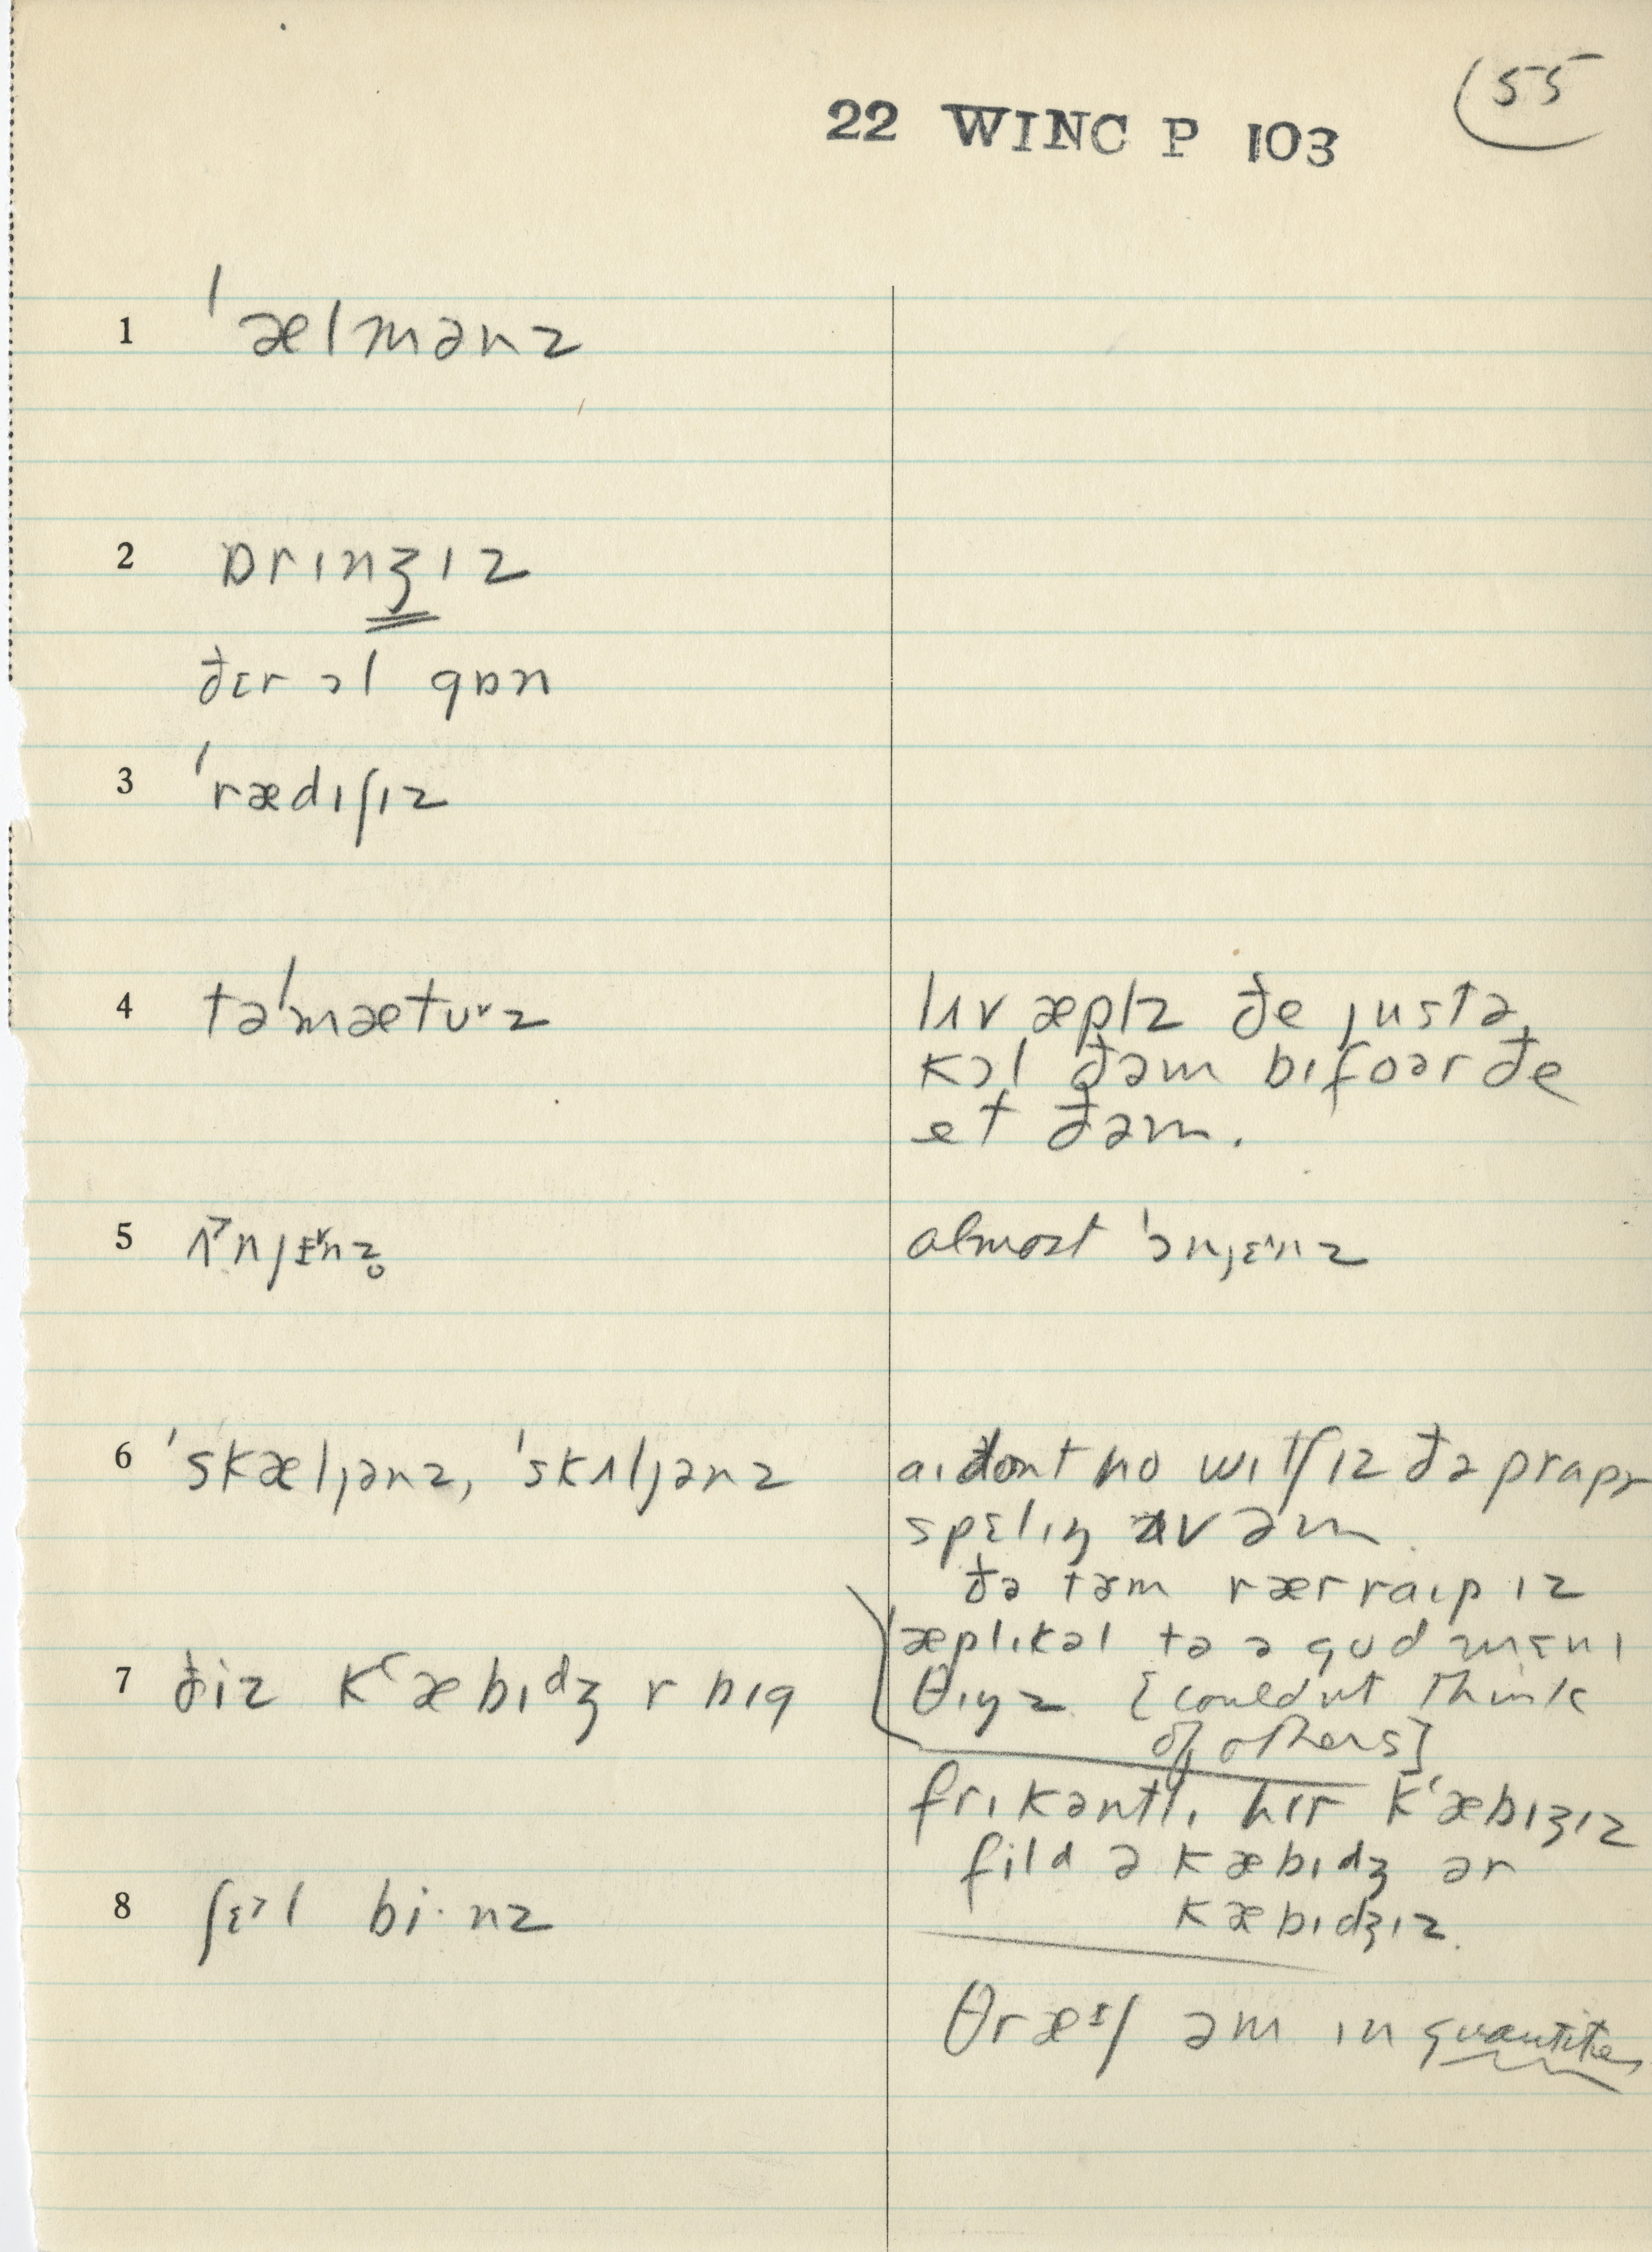 55
22 WINC P 103
1 ˈælmənz
2 ɒrɪnʒɪz
ðɛr ɔl gɒn
3 ˈrædɪʃɪz
4 təˈmætʊ˅z
lʌv æplz ðe justə
kɔl ðəm bɪfoər ðe
et ðəm.
5 ʌ˃njɛ˅nz̥
almost ˈɔnjɛ˄nz
6 ˈskæljənz, ˈskʌljənz
aɪ dont no wɪtʃ ɪz ðə prapɚ
spɛlɪŋ əv əm
ðə tɚm rærraɪp ɪz
æplɪkəl tə ə gud mɛnɪ
θɪŋz [couldn't think
of others]
7 ðiz kʻæbɪdʒ r bɪg
frikəntlɪ hɪr kʻæbɪʒɪz
fild ə kæbɪdʒ ər
kæbɪdʒɪz.
8 ʃɛ˃l bi·nz
θræᶤʃ əm ɪn quantities